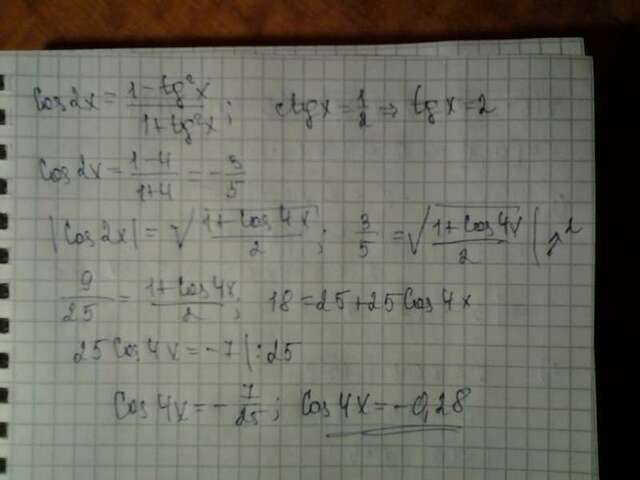 Cos2x = (1-tg²x)/(1+tg²x); ctgx = 1/2 => tgx = 2
Cos2x = (1-4)/(1+4) = -3/5
|Cos2x| = √((1+Cos4x)/2); 3/5 = √((1+Cos4x)/2) | ↗2
9/25 = (1+Cos4x)/2; 18 = 25+25Cos4x
25Cos4x = -7 |:25
Cos4x = -7/25; Cos4x = -0,28